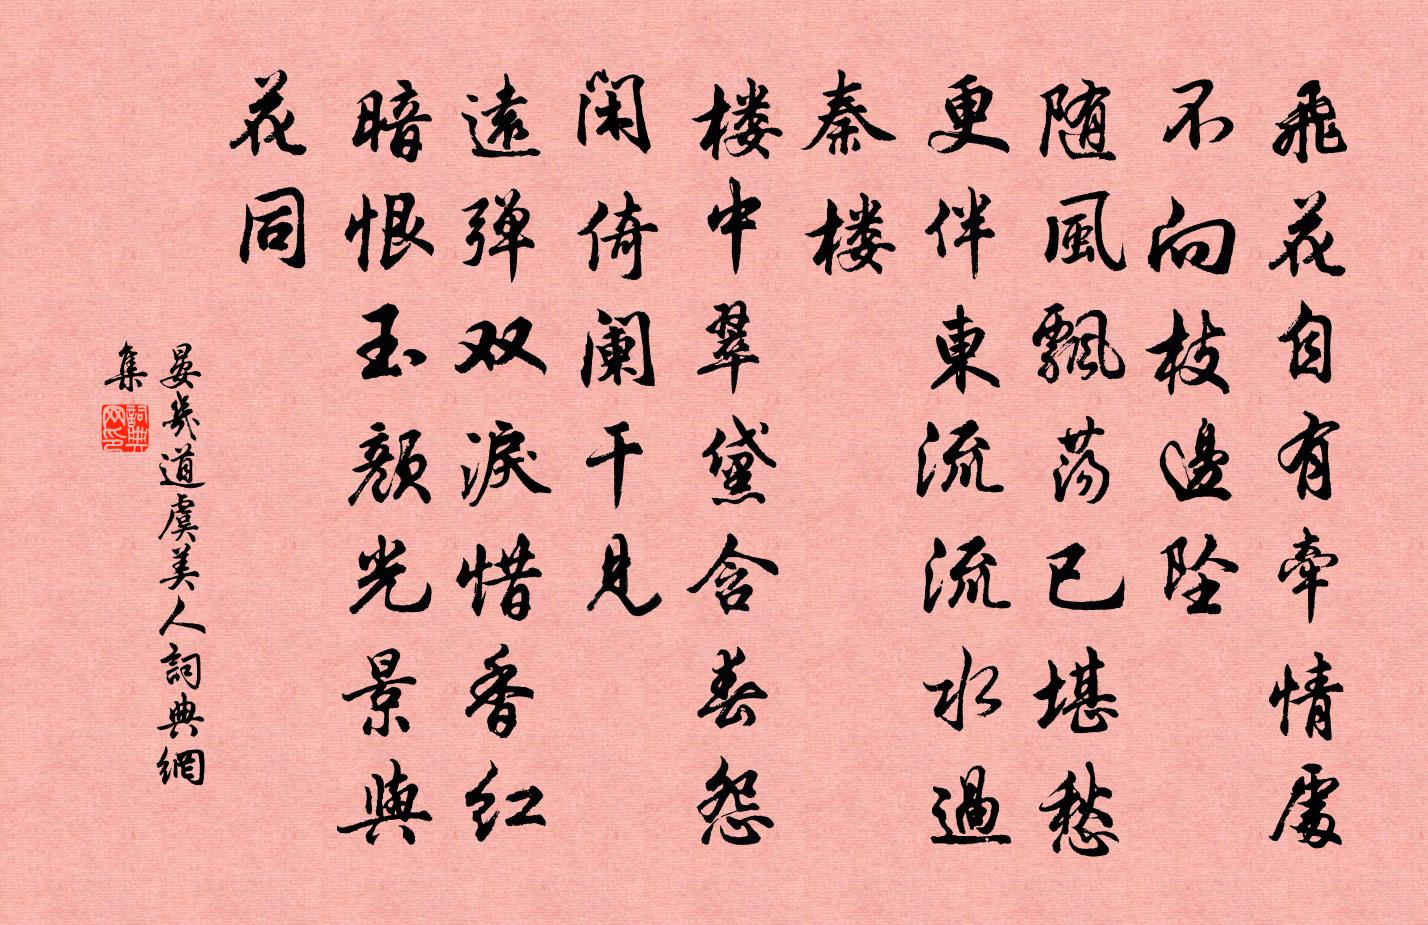 飛花自有牽情處
不向枝邊坠
随風飄荡已堪愁
更伴東流流水過
秦楼
楼中翠黛含春怨
闲倚阑干見
遠弹双淚惜香红
暗恨玉顔光景與
花同
晏幾道虞美人詞典網
集
詞典網印